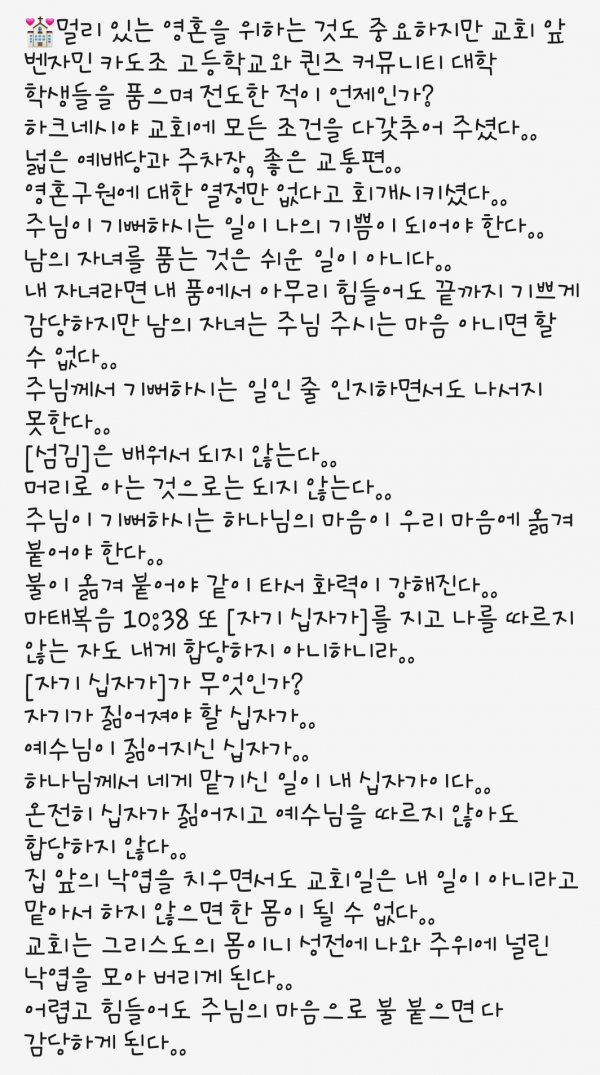 💒멀리 있는 영혼을 위하는 것도 중요하지만 교회 앞
벤자민 카도조 고등학교와 퀸즈 커뮤니티 대학
학생들을 품으며 전도한 적이 언제인가?
하크네시야 교회에 모든 조건을 다갖추어 주셨다..
넓은 예배당과 주차장, 좋은 교통편..
영혼구원에 대한 열정만 없다고 회개시키셨다..
주님이 기뻐하시는 일이 나의 기쁨이 되어야 한다..
남의 자녀를 품는 것은 쉬운 일이 아니다..
내 자녀라면 내 품에서 아무리 힘들어도 끝까지 기쁘게
감당하지만 남의 자녀는 주님 주시는 마음 아니면 할
수 없다..
주님께서 기뻐하시는 일인 줄 인지하면서도 나서지
못한다..
[섬김]은 배워서 되지 않는다..
머리로 아는 것으로는 되지 않는다..
주님이 기뻐하시는 하나님의 마음이 우리 마음에 옮겨
붙어야 한다..
불이 옮겨 붙어야 같이 타서 화력이 강해진다..
마태복음 10:38 또 [자기 십자가]를 지고 나를 따르지
않는 자도 내게 합당하지 아니하니라..
[자기 십자가]가 무엇인가?
자기가 짊어져야 할 십자가..
예수님이 짊어지신 십자가..
하나님께서 네게 맡기신 일이 내 십자가이다..
온전히 십자가 짊어지고 예수님을 따르지 않아도
합당하지 않다..
집 앞의 낙엽을 치우면서도 교회일은 내 일이 아니라고
맡아서 하지 않으면 한 몸이 될 수 없다..
교회는 그리스도의 몸이니 성전에 나와 주위에 널린
낙엽을 모아 버리게 된다..
어렵고 힘들어도 주님의 마음으로 불 붙으면 다
감당하게 된다..